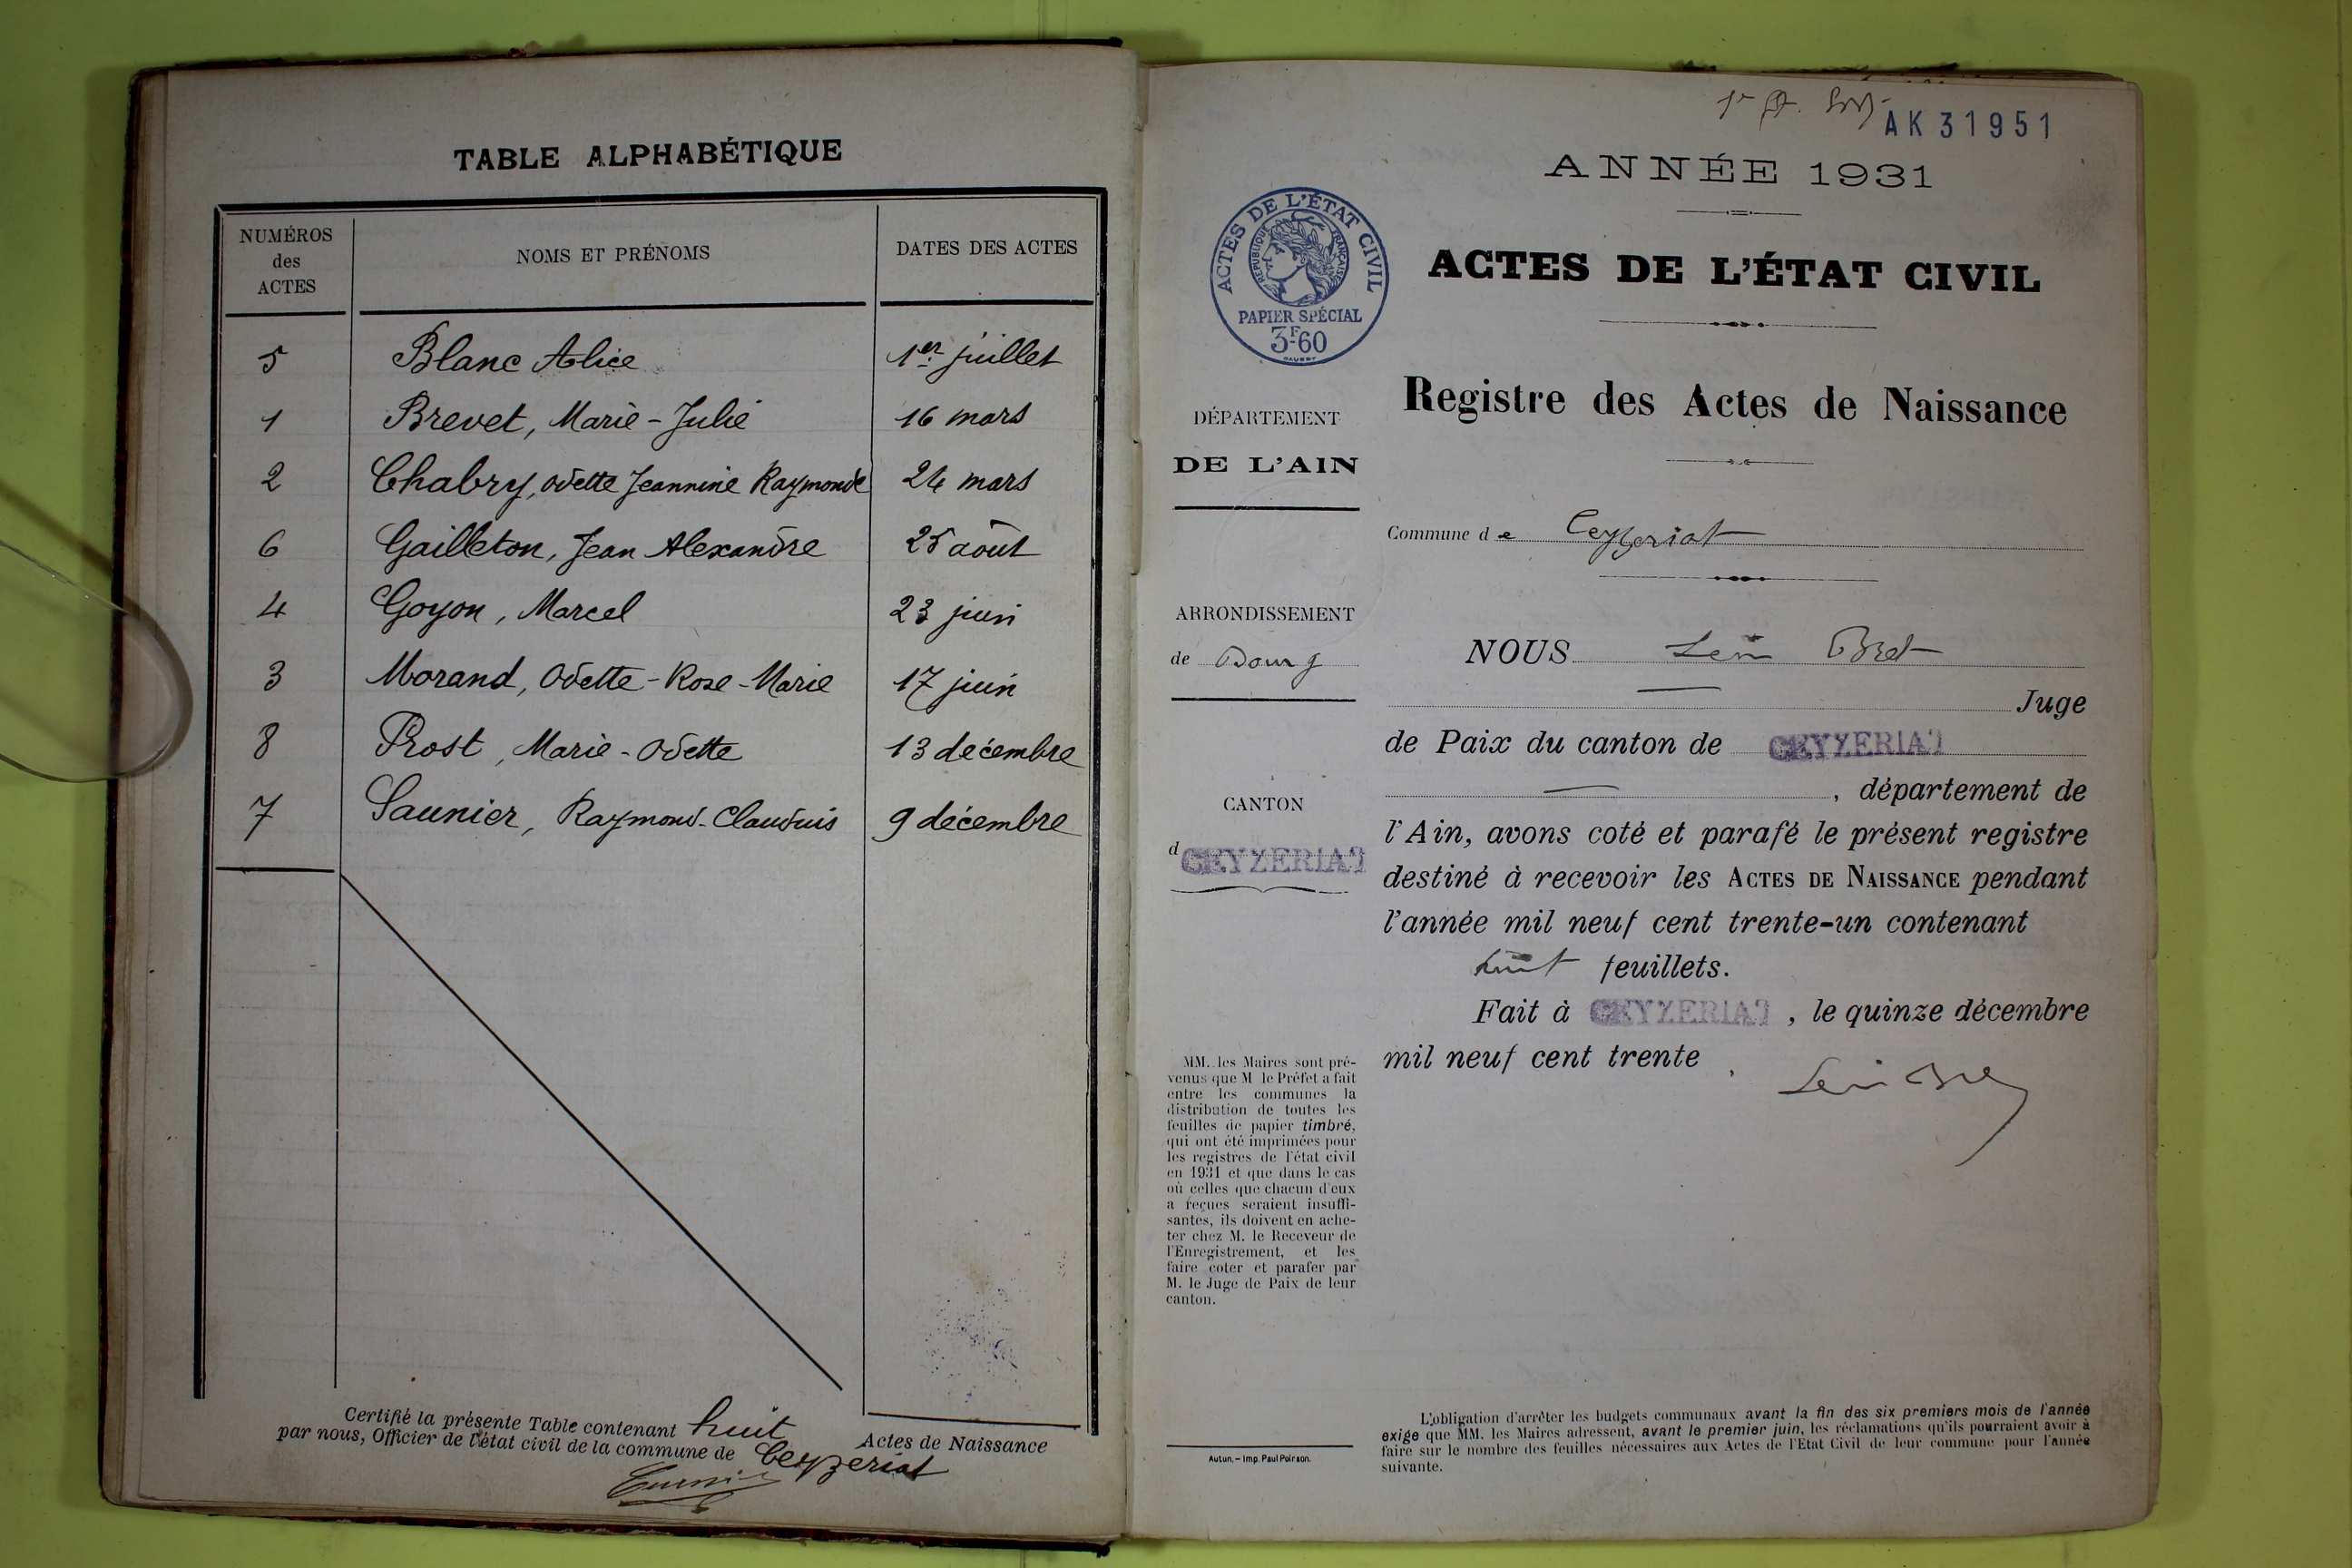 TABLE ALPHABÉTIQUE
NUMÉROS
des
ACTES
NOMS ET PRÉNOMS
DATES DES ACTES
5 Blanc Alice 1er juillet
1 Brevet, Marie-Julie 16 mars
2 Chabry, Odette Jeannine Raymonde 24 mars
6 Gailleton, Jean Alexandre 25 août
4 Goyon, Marcel 23 juin
3 Morand, Odette-Rose-Marie 17 juin
8 Prost, Marie-Odette 13 décembre
7 Saunier, Raymond-Claudius 9 décembre
Certifié la présente Table contenant huit Actes de Naissance
par nous, Officier de l'état civil de la commune de Ceyzeriat
AK 31951
ANNÉE 1931
ACTES DE L'ÉTAT CIVIL
RÉPUBLIQUE FRANÇAISE
PAPIER SPÉCIAL
3F60
ACTES DE L'ÉTAT CIVIL
Registre des Actes de Naissance
DÉPARTEMENT
DE L'AIN
Commune de Ceyzeriat
ARRONDISSEMENT
de Bourg
CANTON
d CEYZERIAT
NOUS Léon Bret
Juge
de Paix du canton de CEYZERIAT
, département de
l'Ain, avons coté et parafé le présent registre
destiné à recevoir les ACTES DE NAISSANCE pendant
l'année mil neuf cent trente-un contenant
huit feuillets.
Fait à CEYZERIAT, le quinze décembre
mil neuf cent trente
Léon Bret
MM. les Maires sont pré-
venus que M le Préfet a fait
entre les communes la
distribution de toutes les
feuilles de papier timbré,
qui ont été imprimées pour
les registres de l'état civil
en 1931 et que dans le cas
où celles que chacun d'eux
a reçues seraient insuffi-
santes, ils doivent en ache-
ter chez M. le Receveur de
l'Enregistrement, et les
faire coter et parafer par
M. le Juge de Paix de leur
canton.
Autun. – Imp. Paul Poirson.
L'obligation d'arrêter les budgets communaux avant la fin des six premiers mois de l'année
exige que MM. les Maires adressent, avant le premier juin, les réclamations qu'ils pourraient avoir à
faire sur le nombre des feuilles nécessaires aux Actes de l'Etat Civil de leur commune pour l'année
suivante.